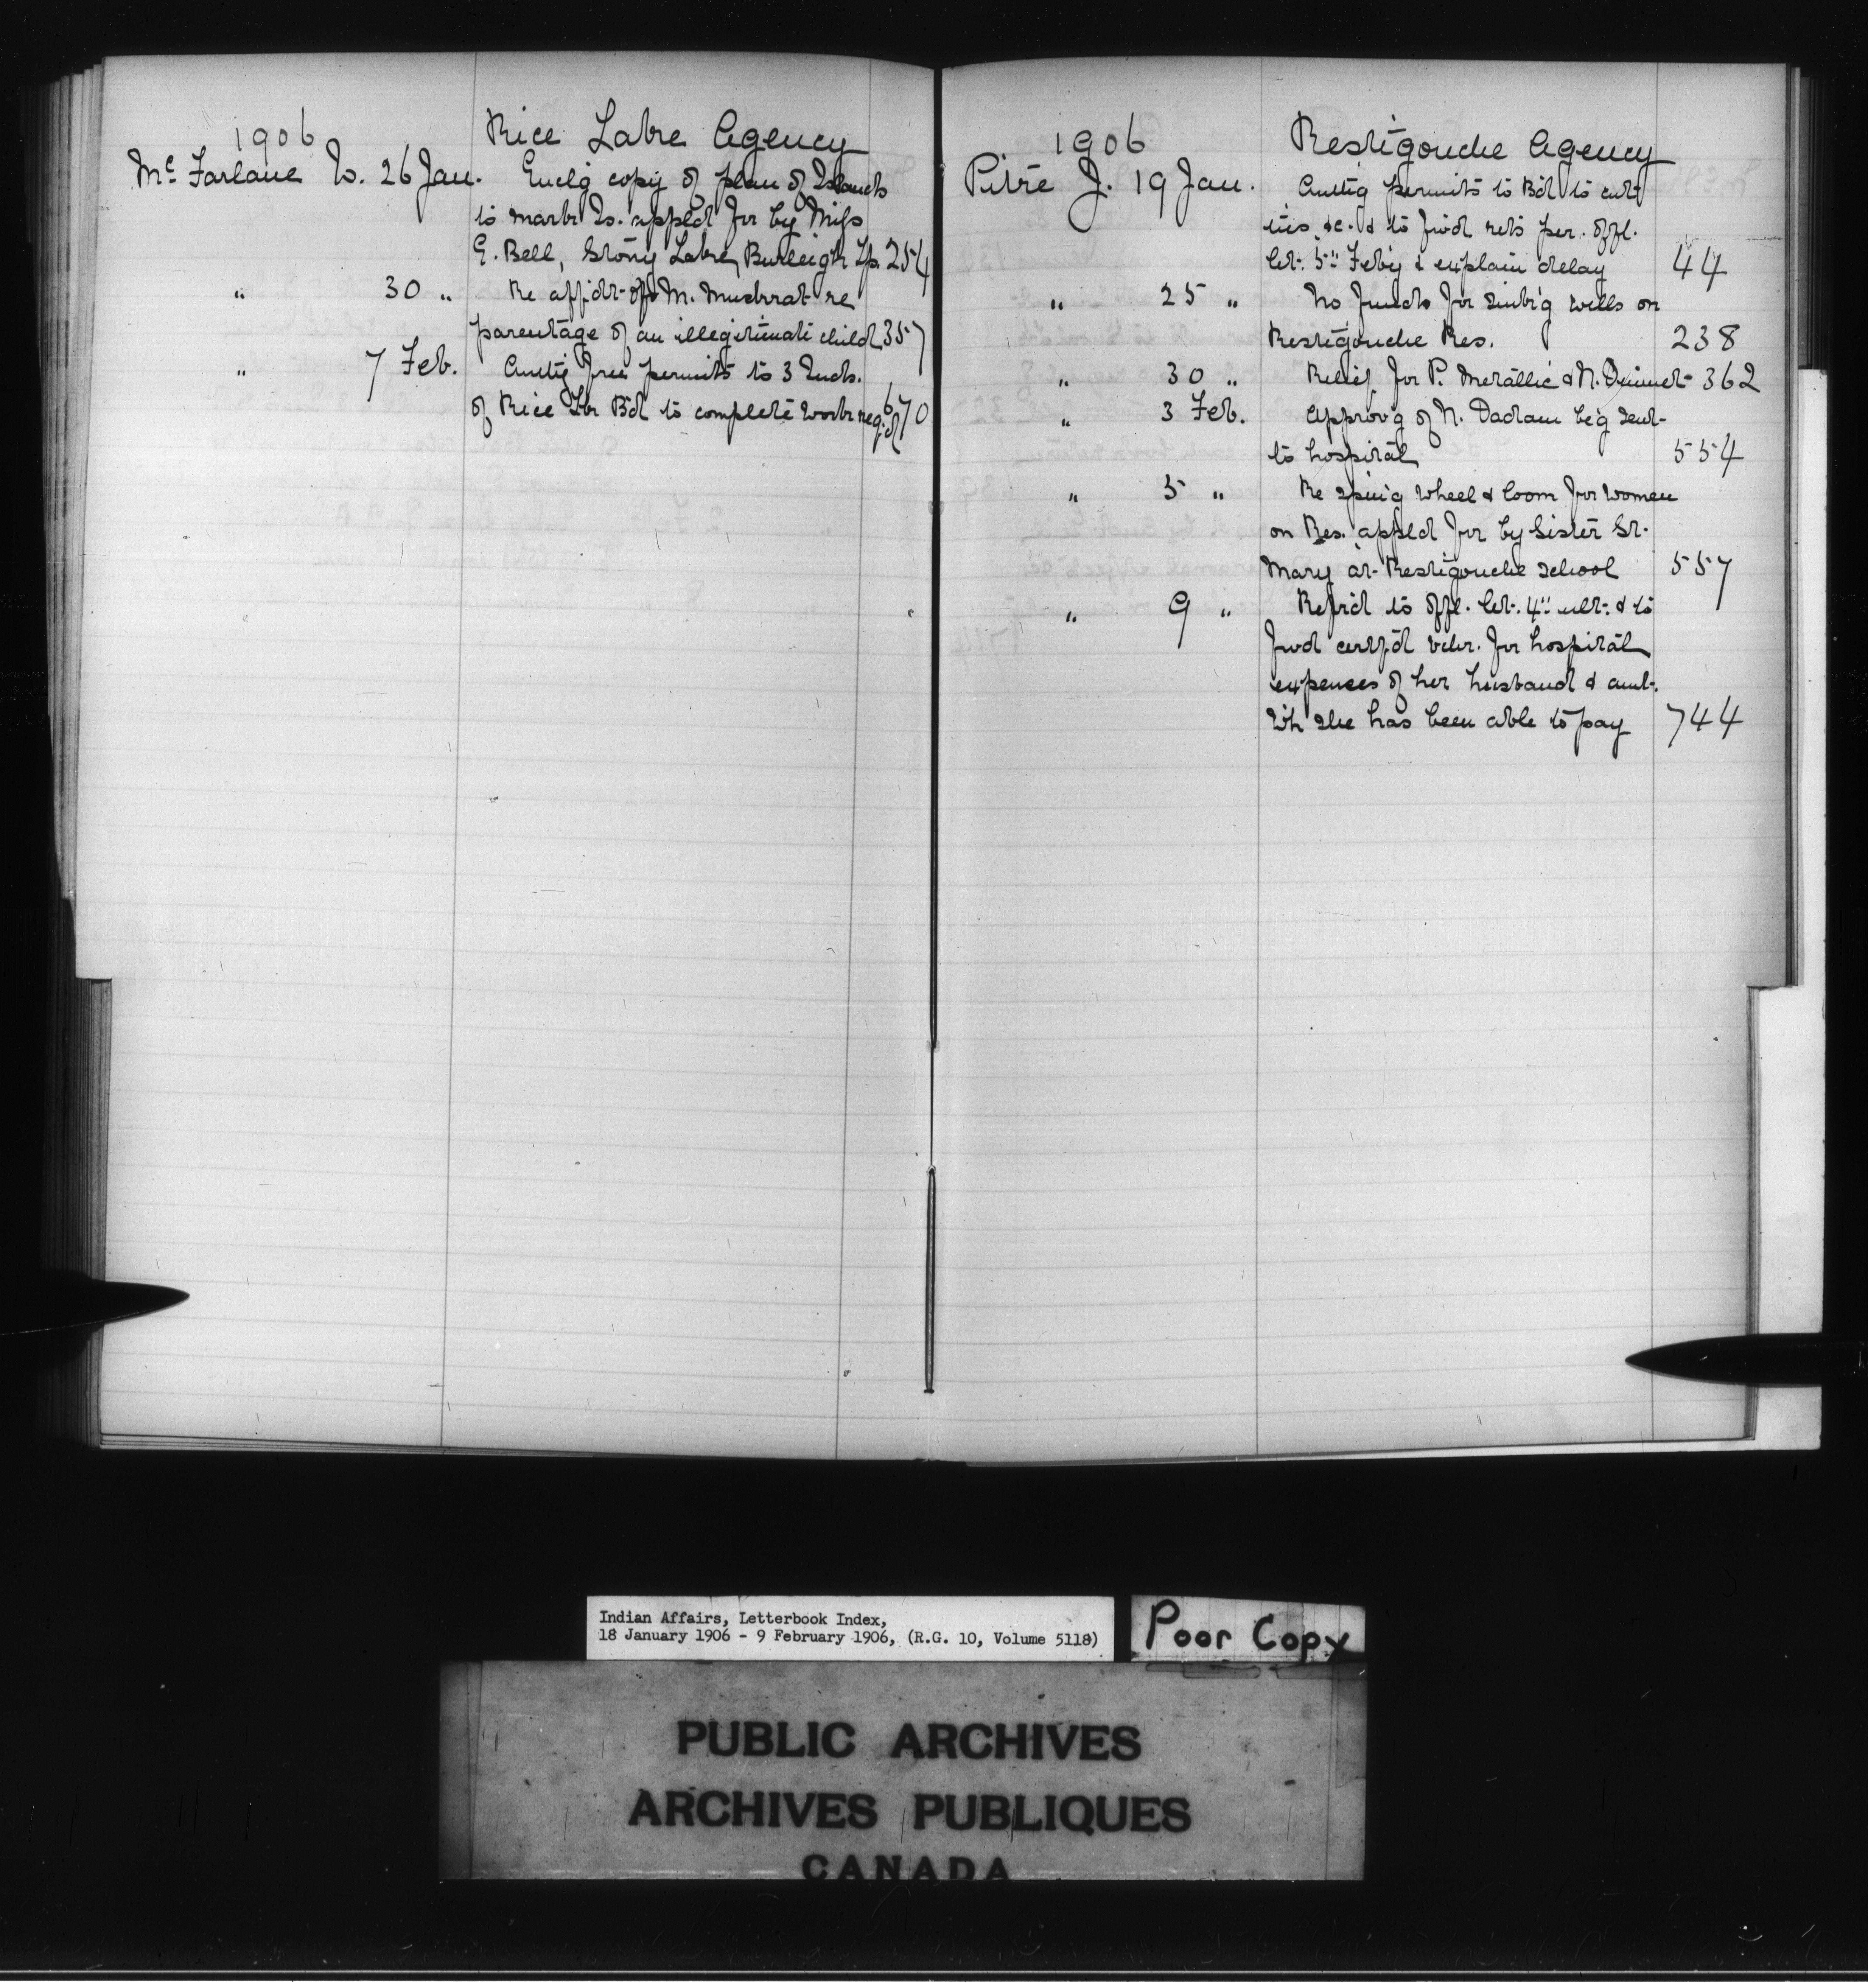 1906 Rice Lake Agency
McFarlane W. 26 Jan. Encl'g copy of plan of Islands
to mark Is. appl'd for by Miss
E. Bell, Stony Lake, Burleigh Tp. 254
" 30 " Re affidt of M. Muskrat re
parentage of an illegitimate child 357
" 7 Feb. Auth'g free permits to 3 Inds.
of Rice Lk Bd to complete work req. of 670
1906 Restigouche Agency
Pitre J. 19 Jan. Auth'g permits to Bd to cut
ties &c. & to fwd rets per. offl.
let. 5" Feb'y & explain delay 44
" 25 " No funds for sink'g wells on
Restigouche Res. 238
" 30 " Relief for P. Metallic & N. 362
" 3 Feb. Approv'g of N. be'g sent
to hospital 554
" 5 " Re spin'g wheel & loom for women
on Res. appl'd for by Sister St.
Mary at Restigouche school 557
" 9 " Refr'd to offl. let. 4" ult. & to
fwd certf'd vchr. for hospital
expenses of her husband & amt.
wh she has been able to pay 744
Indian Affairs, Letterbook Index,
18 January 1906 - 9 February 1906, (R.G. 10, Volume 5118)
Poor Copy
PUBLIC ARCHIVES
ARCHIVES PUBLIQUES
CANADA